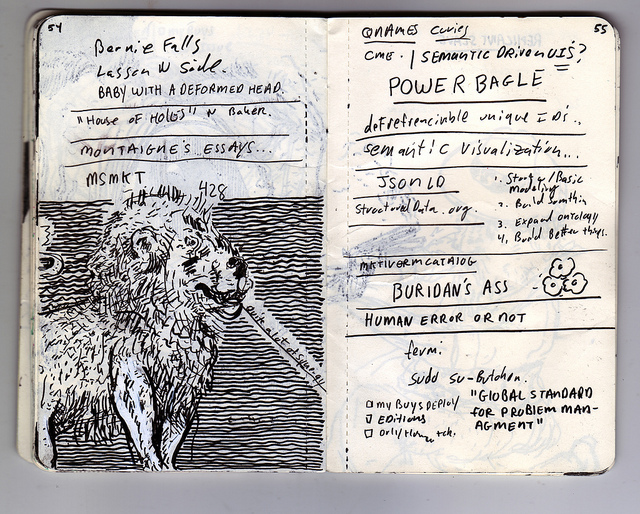 54
Bernie Falls
Lassen N Side.
BABY WITH A DEFORMED HEAD.
"House of HOLES" N Baker.
MONTAIGNE'S ESSAYS...
MSMKT
428
55
QNAMES Curies
CME. / SEMANTIC DRIVEN UIS?
POWER BAGLE
derefrencible unique IDs..
semantic visualization...
JSON LD
Structured Data.org.
1. Start w/ Basic
Modeling
2. Build Somthin
3. Expand ontology
4. Build Better things.
BURIDAN'S ASS
HUMAN ERROR OR NOT
fermi.
sudo su
my Buys DEPLOY
EDITIONS
"GLOBAL STANDARD
FOR PROBLEM MAN-
AGMENT"